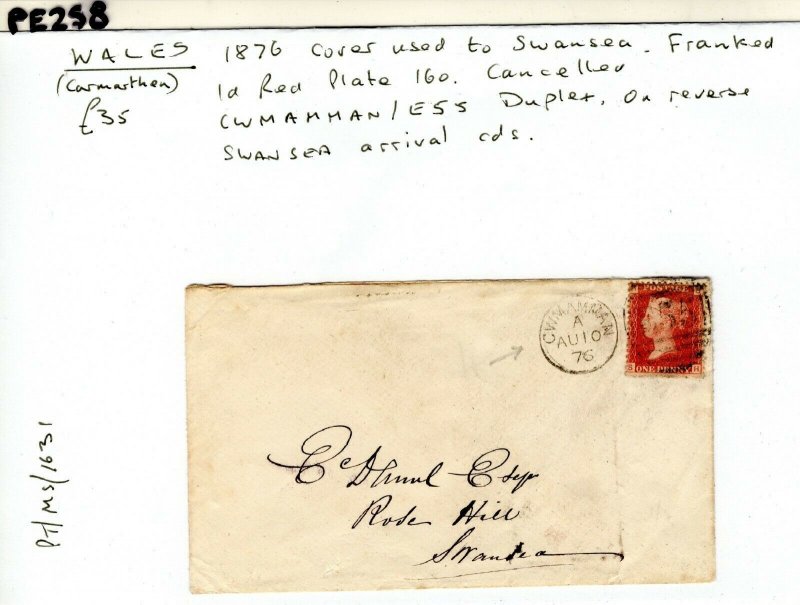 PE258
WALES
(Carmarthen)
£35
1876 cover used to Swansea. Franked
1d Red Plate 160. Cancelled
CWMAMMAN/E55 Duplex. On reverse
SWANSEA arrival cds.
CWMAMMAN
A
AU10
76
ONE PENNY
Esqr
Rose Hill
Swansea
PT/MS/1631